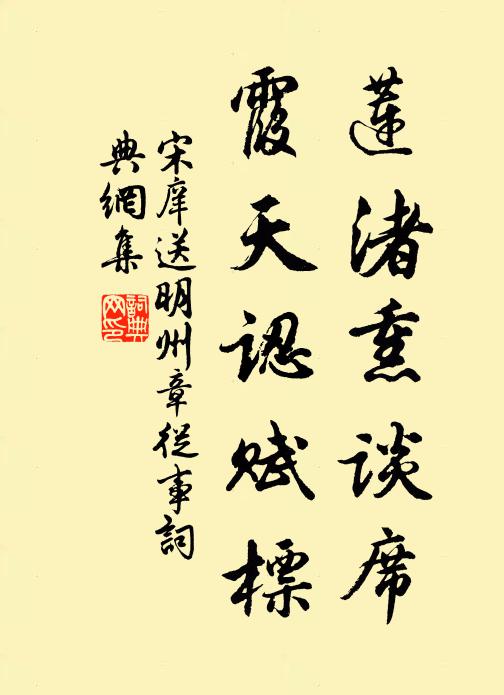 蓮渚熏談席
霞天認賦標
宋庠送明州章從事詞
典網集
詞典網印